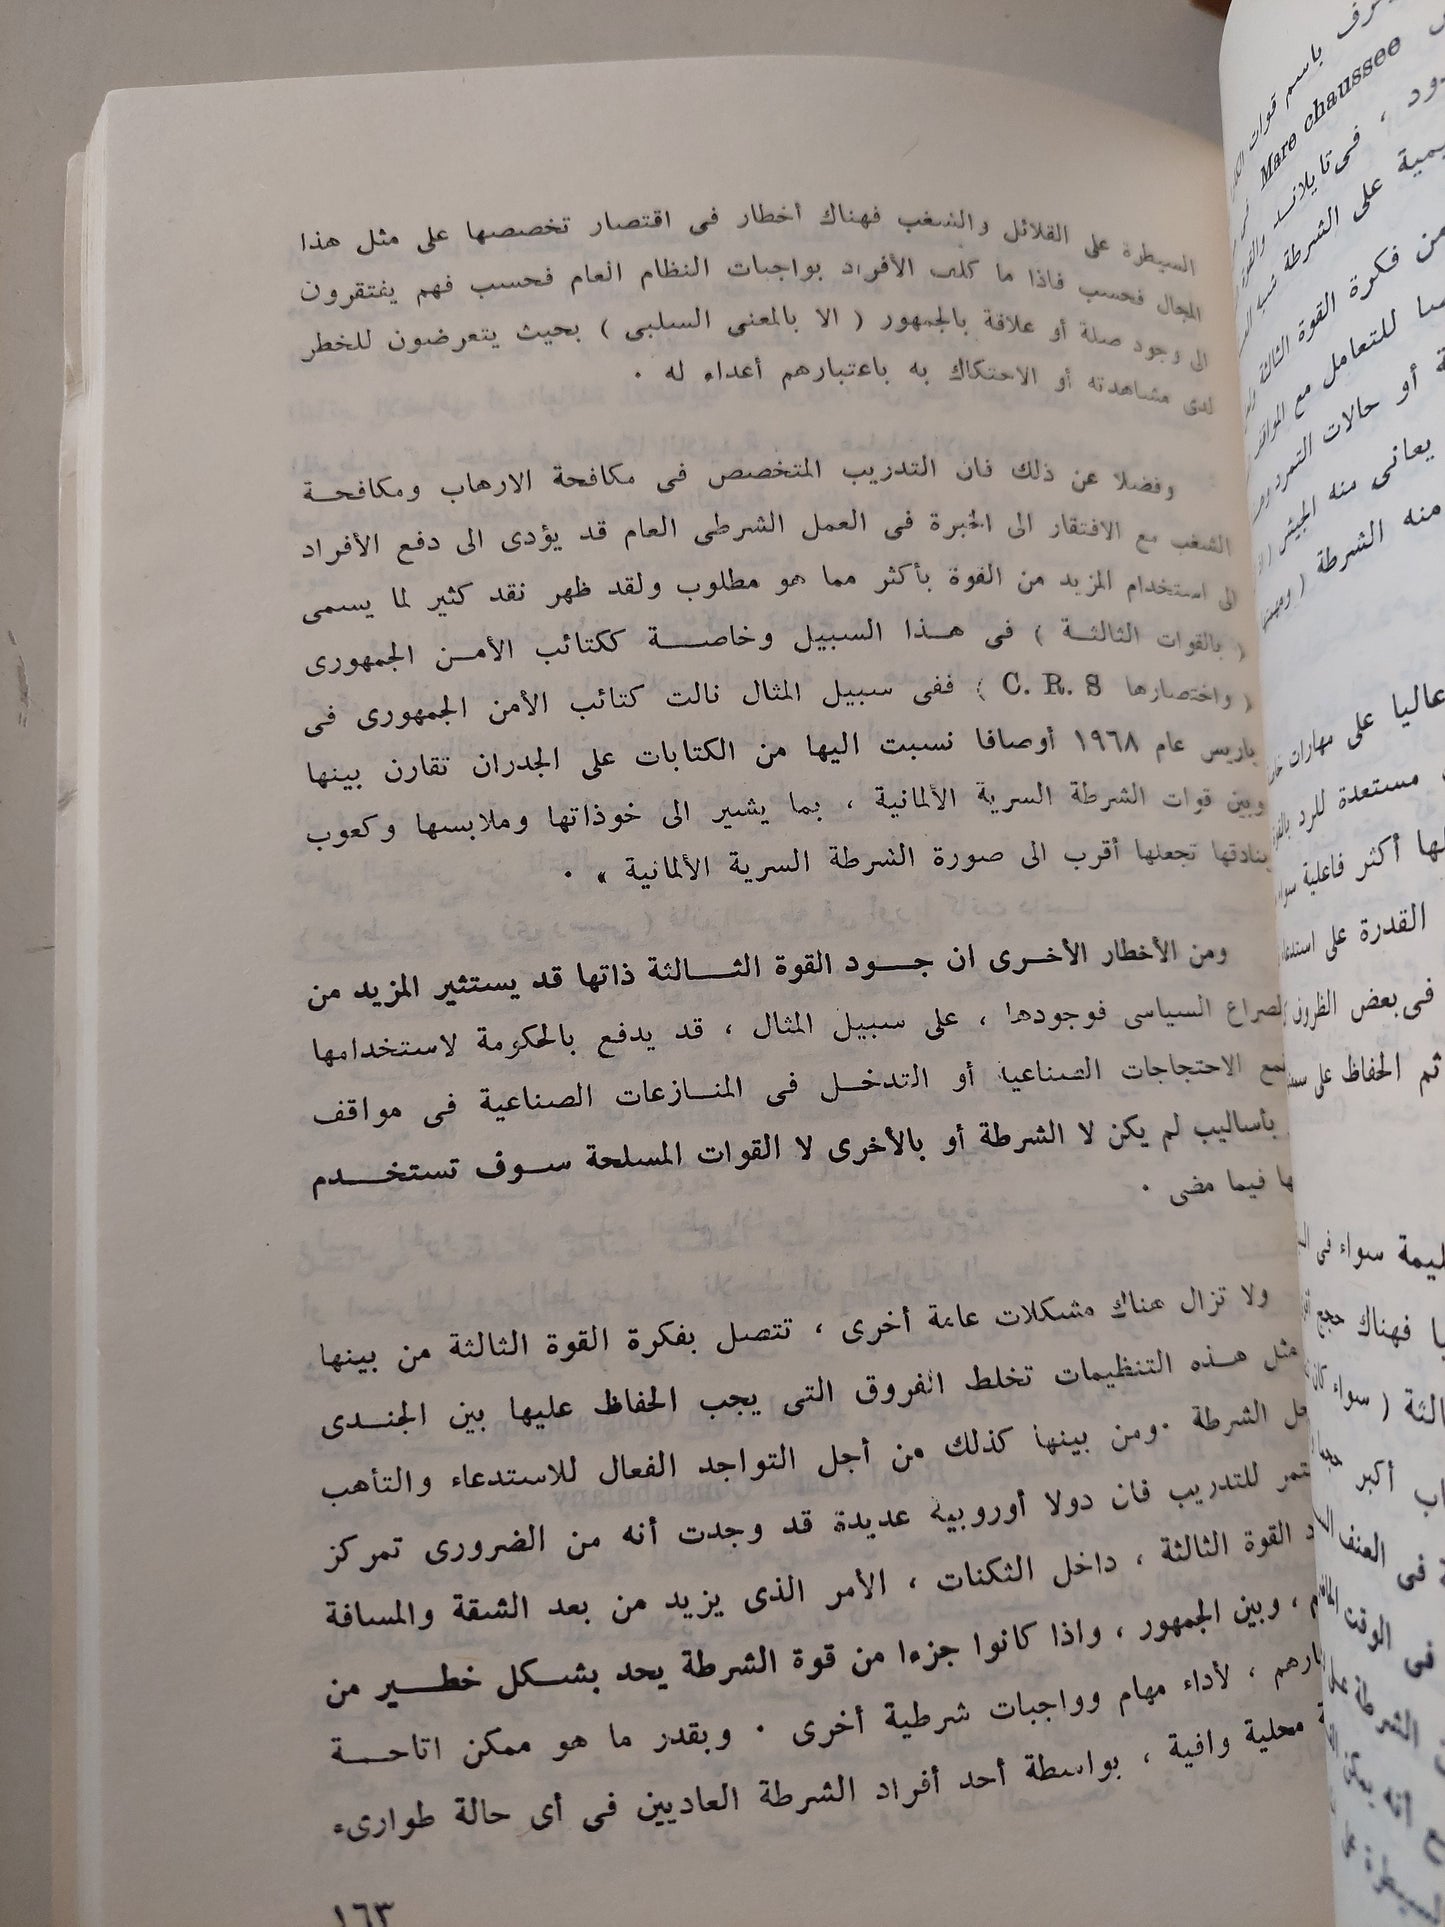 السيطرة على القلاقل والشغب فهناك أخطار فى اقتصار تخصصها على مثل هذا
المجال فحسب فاذا ما كلف الأفراد بواجبات النظام العام فحسب فهم يفتقرون
الى وجود صلة أو علاقة بالجمهور ( الا بالمعنى السلبى ) بحيث يتعرضون للخطر
لدى مشاهدته أو الاحتكاك به باعتبارهم أعداء له ٠
وفضلا عن ذلك فان التدريب المتخصص فى مكافحة الارهاب ومكافحة
الشغب مع الافتقار الى الخبرة فى العمل الشرطى العام قد يؤدى الى دفع الأفراد
الى استخدام المزيد من القوة بأكثر مما هو مطلوب ولقد ظهر نقد كثير لما يسمى
( بالقوات الثالثة ) فى هذا السبيل وخاصة ككتائب الأمن الجمهورى
( واختصارها C. R. S ) ففى سبيل المثال نالت كتائب الأمن الجمهورى فى
باريس عام ١٩٦٨ أوصافا نسبت اليها من الكتابات على الجدران تقارن بينها
وبين قوات الشرطة السرية الألمانية ، بما يشير الى خوذاتها وملابسها وكعوب
بنادقها تجعلها أقرب الى صورة الشرطة السرية الألمانية » ٠
ومن الأخطار الأخرى ان جود القوة الثالثة ذاتها قد يستثير المزيد من
الصراع السياسى فوجودها ، على سبيل المثال ، قد يدفع بالحكومة لاستخدامها
الاحتجاجات الصناعية أو التدخل فى المنازعات الصناعية فى مواقف
بأساليب لم يكن لا الشرطة أو بالأخرى لا القوات المسلحة سوف تستخدم
فيما مضى ٠
ولا تزال هناك مشكلات عامة أخرى ، تتصل بفكرة القوة الثالثة من بينها
مثل هذه التنظيمات تخلط الفروق التى يجب الحفاظ عليها بين الجندى
الشرطة ٠ ومن بينها كذلك من أجل التواجد الفعال للاستدعاء والتأهب
للتدريب فان دولا أوروبية عديدة قد وجدت أنه من الضرورى تمركز
القوة الثالثة ، داخل الثكنات ، الأمر الذى يزيد من بعد الشقة والمسافة
، وبين الجمهور ، واذا كانوا جزءا من قوة الشرطة يحد بشكل خطير من
، لأداء مهام وواجبات شرطية أخرى ٠ وبقدر ما هو ممكن اتاحة
محلية وافية ، بواسطة أحد أفراد الشرطة العاديين فى أى حالة طوارىء
١٦٣
باسم قوات
Mare chaussee
فى تايلاند
على الشرطة
من فكرة القوة الثالثة
للتعامل مع
أو حالات التمرد
يعانى منه الجيش
منه الشرطة (
عاليا على مهارات
مستعدة للرد
أكثر فاعلية
القدرة على
فى بعض الظروف
ثم الحفاظ على
سواء فى
فهناك حجج
( سواء كان
أكبر
فى العنف
فى الوقت
الشرطة